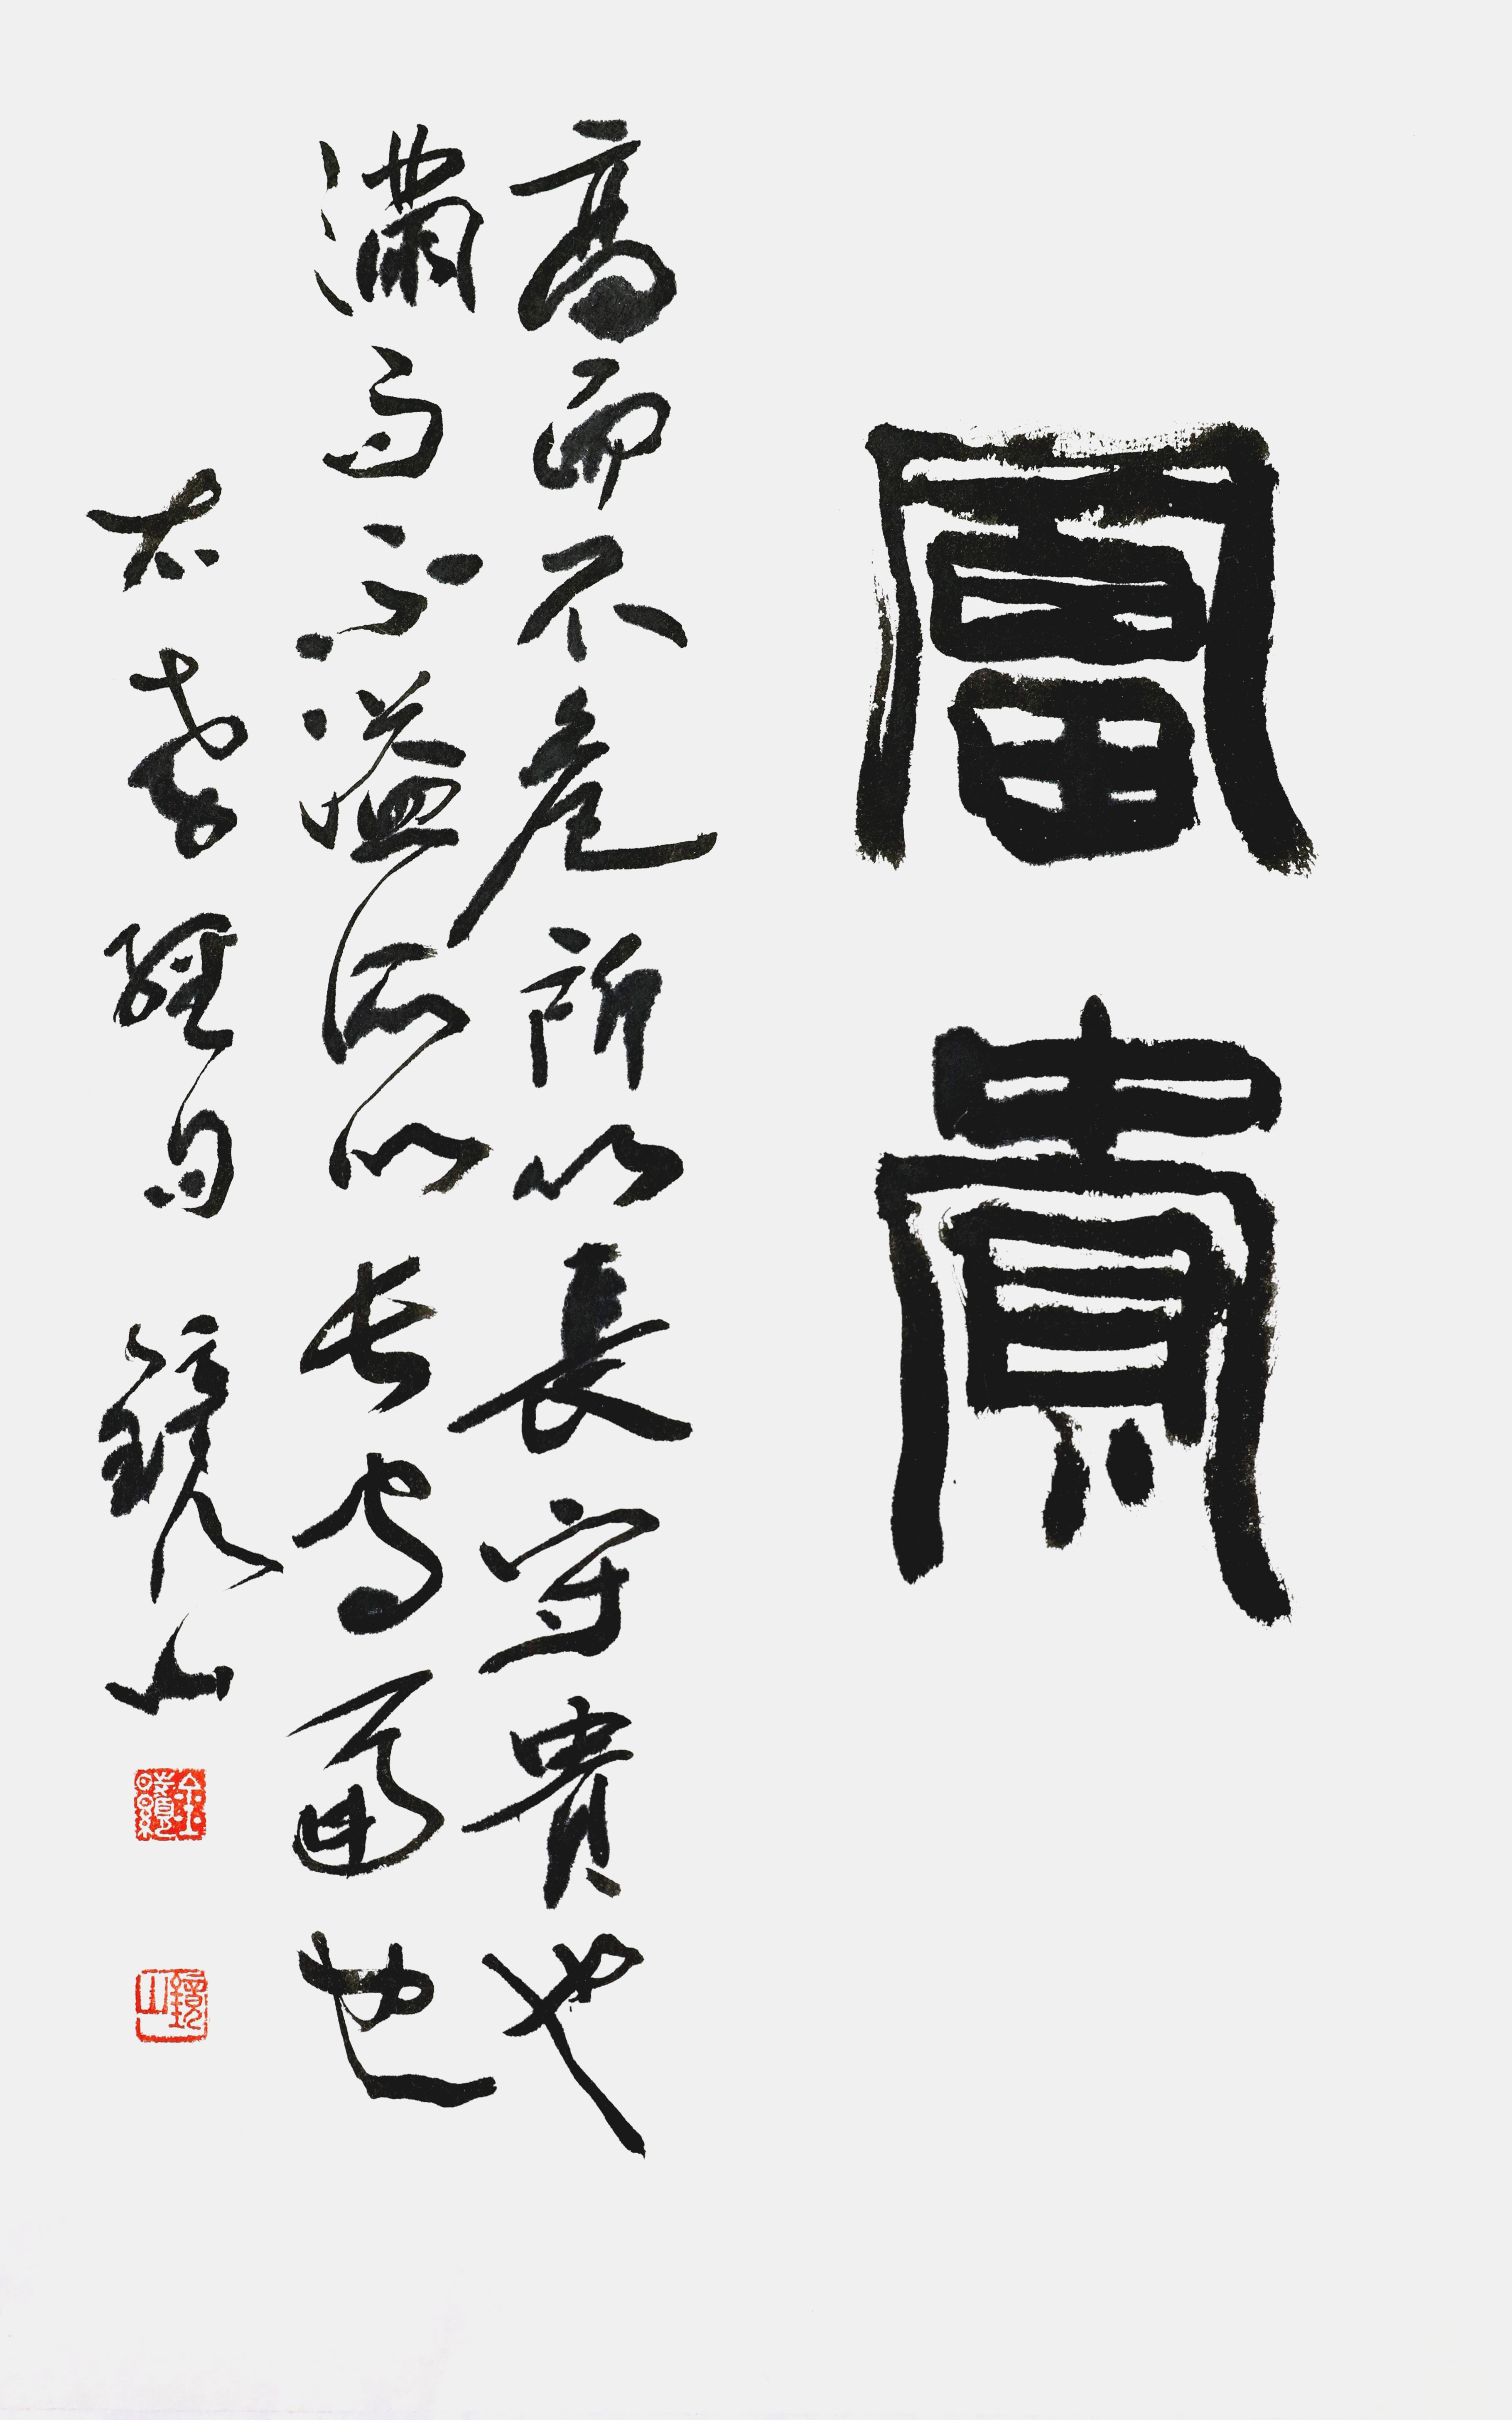 富貴
高而不危所以長守貴也
滿而不溢所以長守富也
右孝經句 鏡山
鏡山